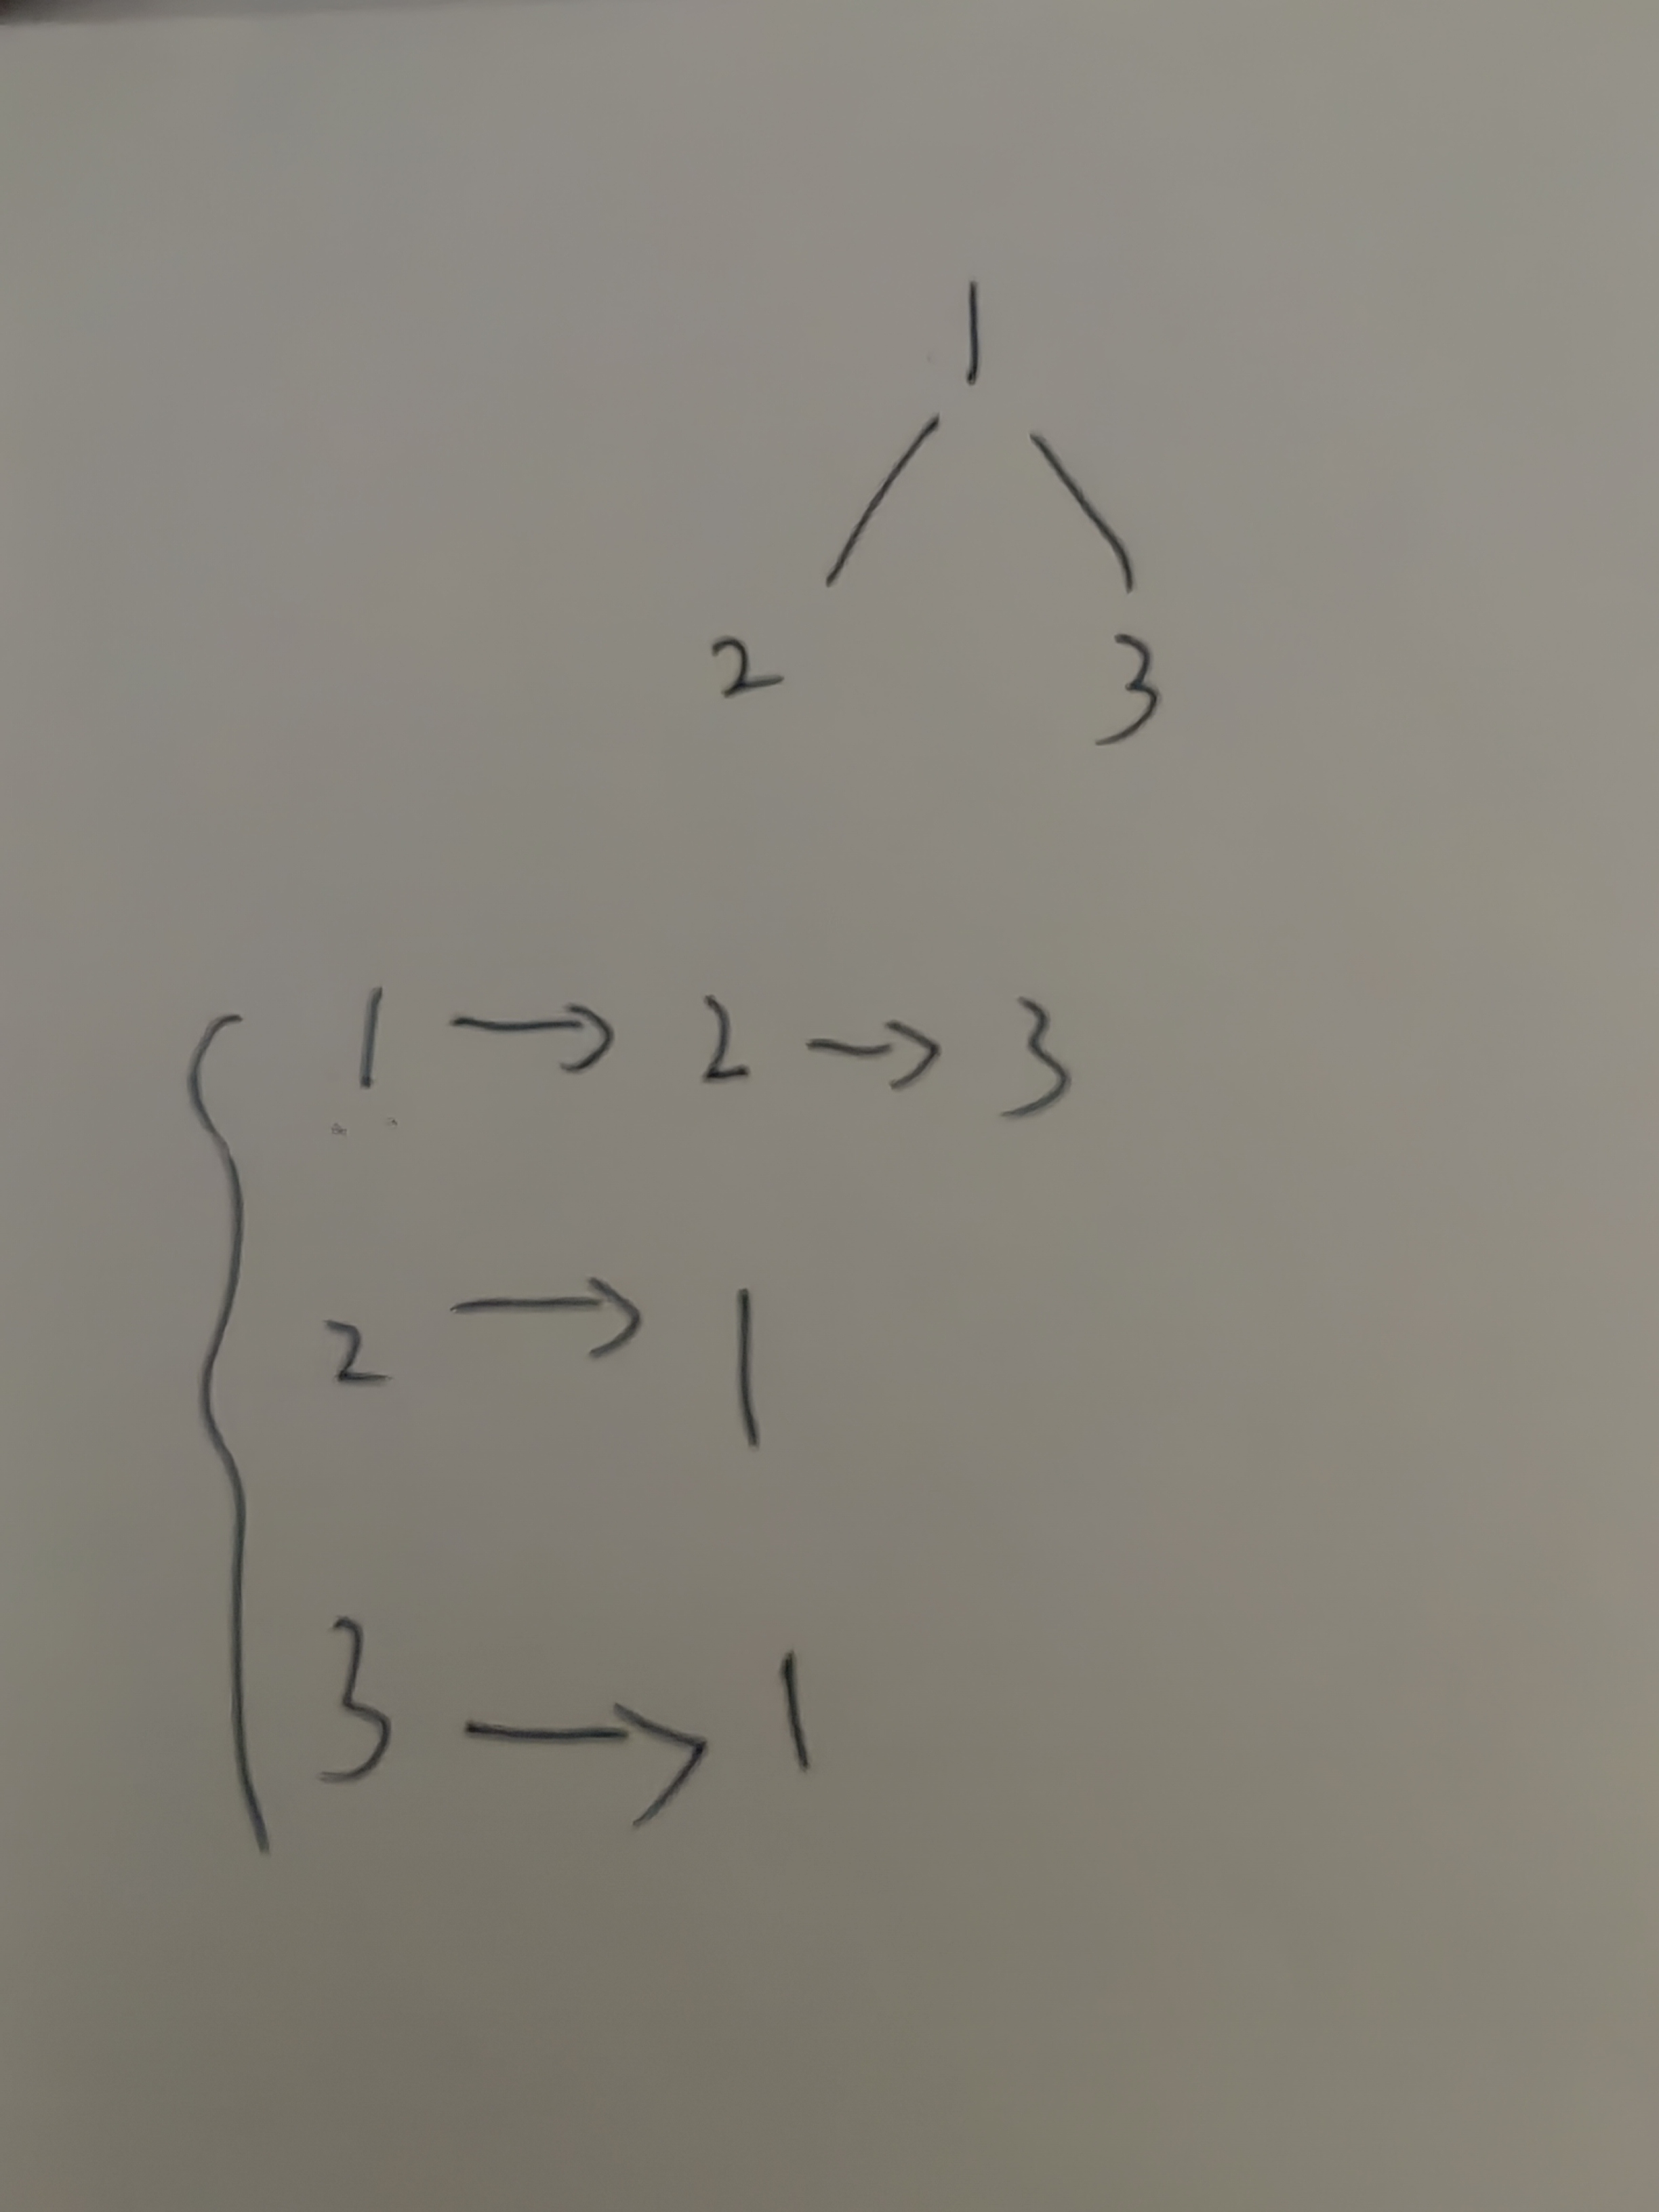 1
2 3
1 → 2 → 3
2 → 1
3 → 1